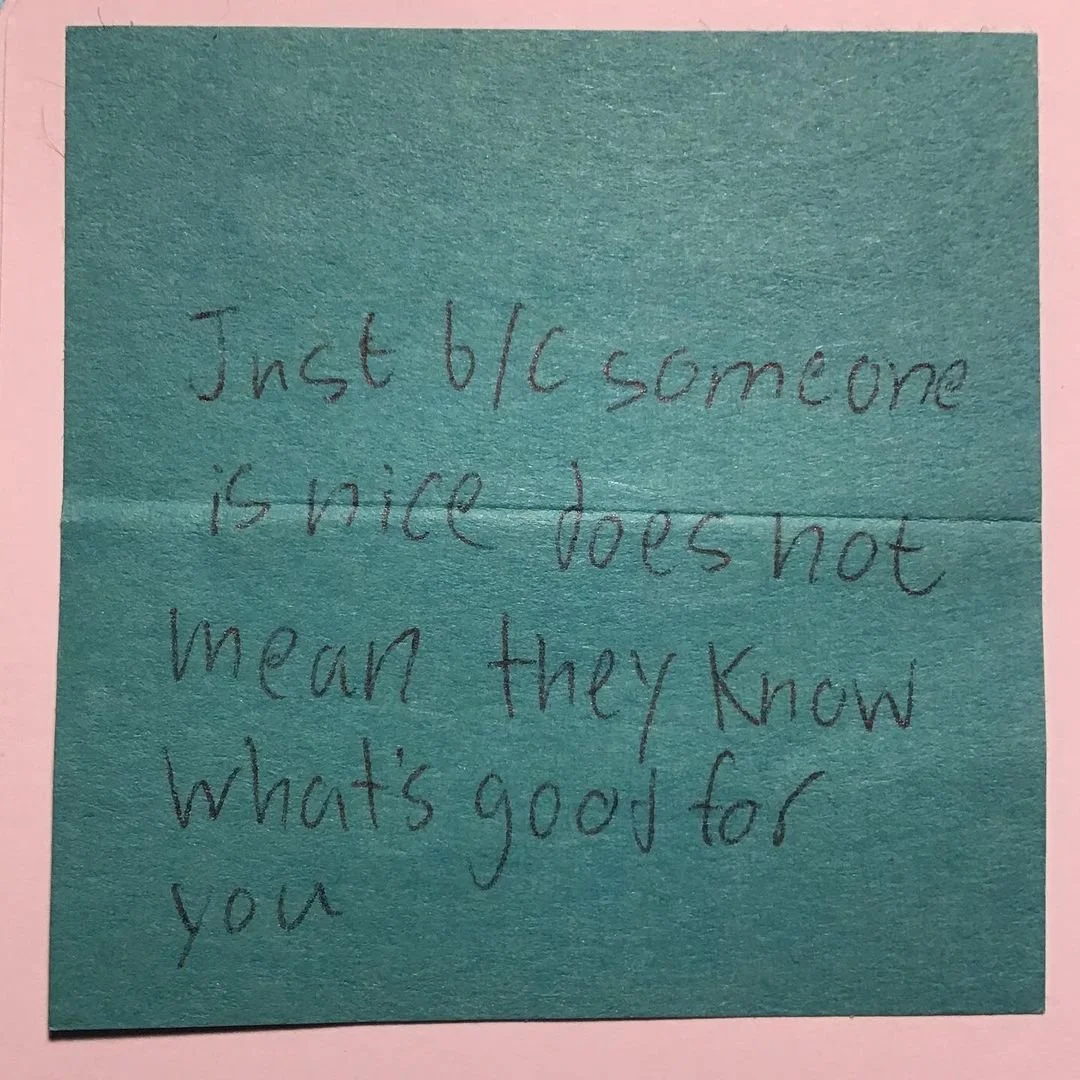 Just b/c someone
is nice does not
mean they know
what's good for
you